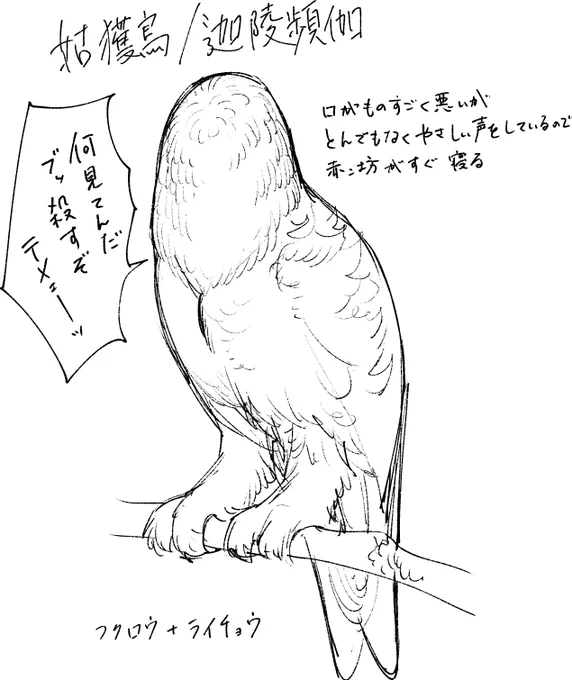 姑獲鳥/迦陵頻伽
口がものすごく悪いが
とんでもなくやさしい声をしているので
赤ン坊がすぐ寝る
何見てんだ
ブッ殺すぞ
テメェーッ
フクロウ+ライチョウ